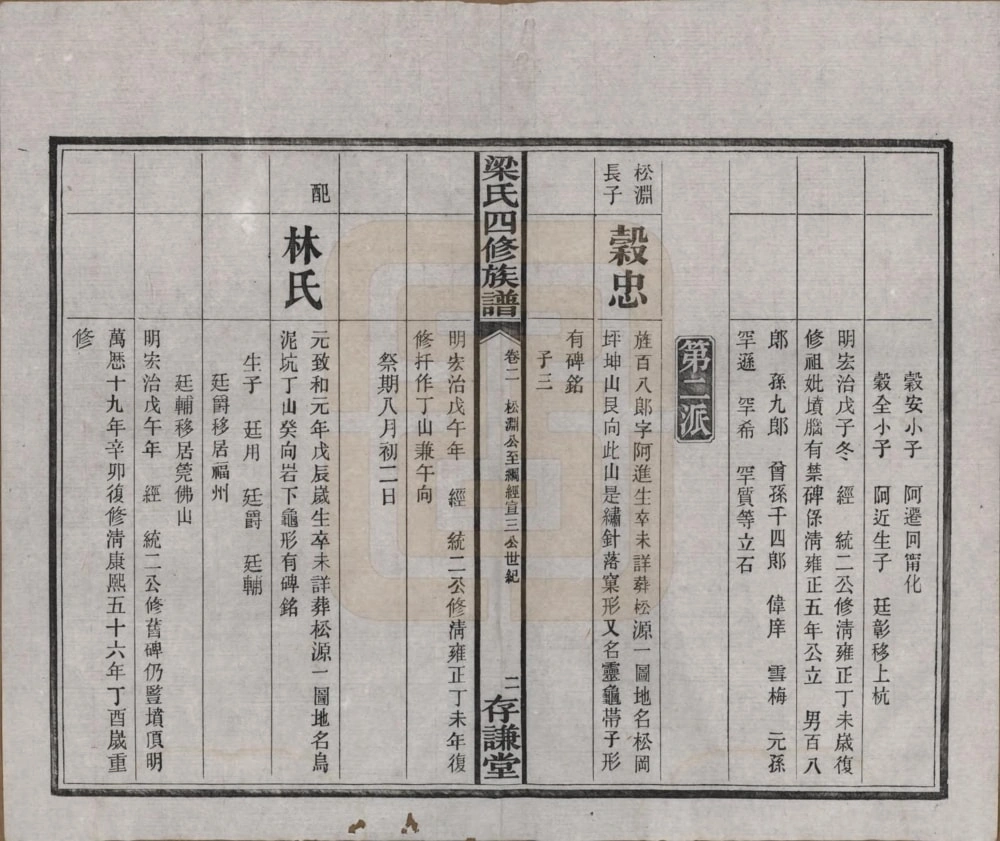 穀安小子　阿遷回甯化
穀全小子　阿近生子　廷彰移上杭
明宏治戊子冬　經　統二公修淸雍正丁未歲復
修祖妣墳腦有禁碑係淸雍正五年公立　男百八
郞　孫九郞　曾孫千四郞　偉庠　雪梅　元孫
罕遜　罕希　罕質等立石
第二派
松淵長子
穀忠
旌百八郞字阿進生卒未詳葬松源一圖地名松岡
坪坤山艮向此山是繡針落窠形又名靈龜帶子形
有碑銘
子三
梁氏四修族譜
卷二　松淵公至綱經宣三公世紀
二
存謙堂
明宏治戊午年　經　統二公修淸雍正丁未年復
修扦作丁山兼午向
祭期八月初二日
配
林氏
元致和元年戊辰歲生卒未詳葬松源一圖地名烏
泥坑丁山癸向岩下龜形有碑銘
生子　廷用　廷爵　廷輔
廷爵移居福州
廷輔移居莞佛山
明宏治戊午年　經　統二公修舊碑仍豎墳頂明
萬歷十九年辛卯復修淸康熙五十六年丁酉歲重
修